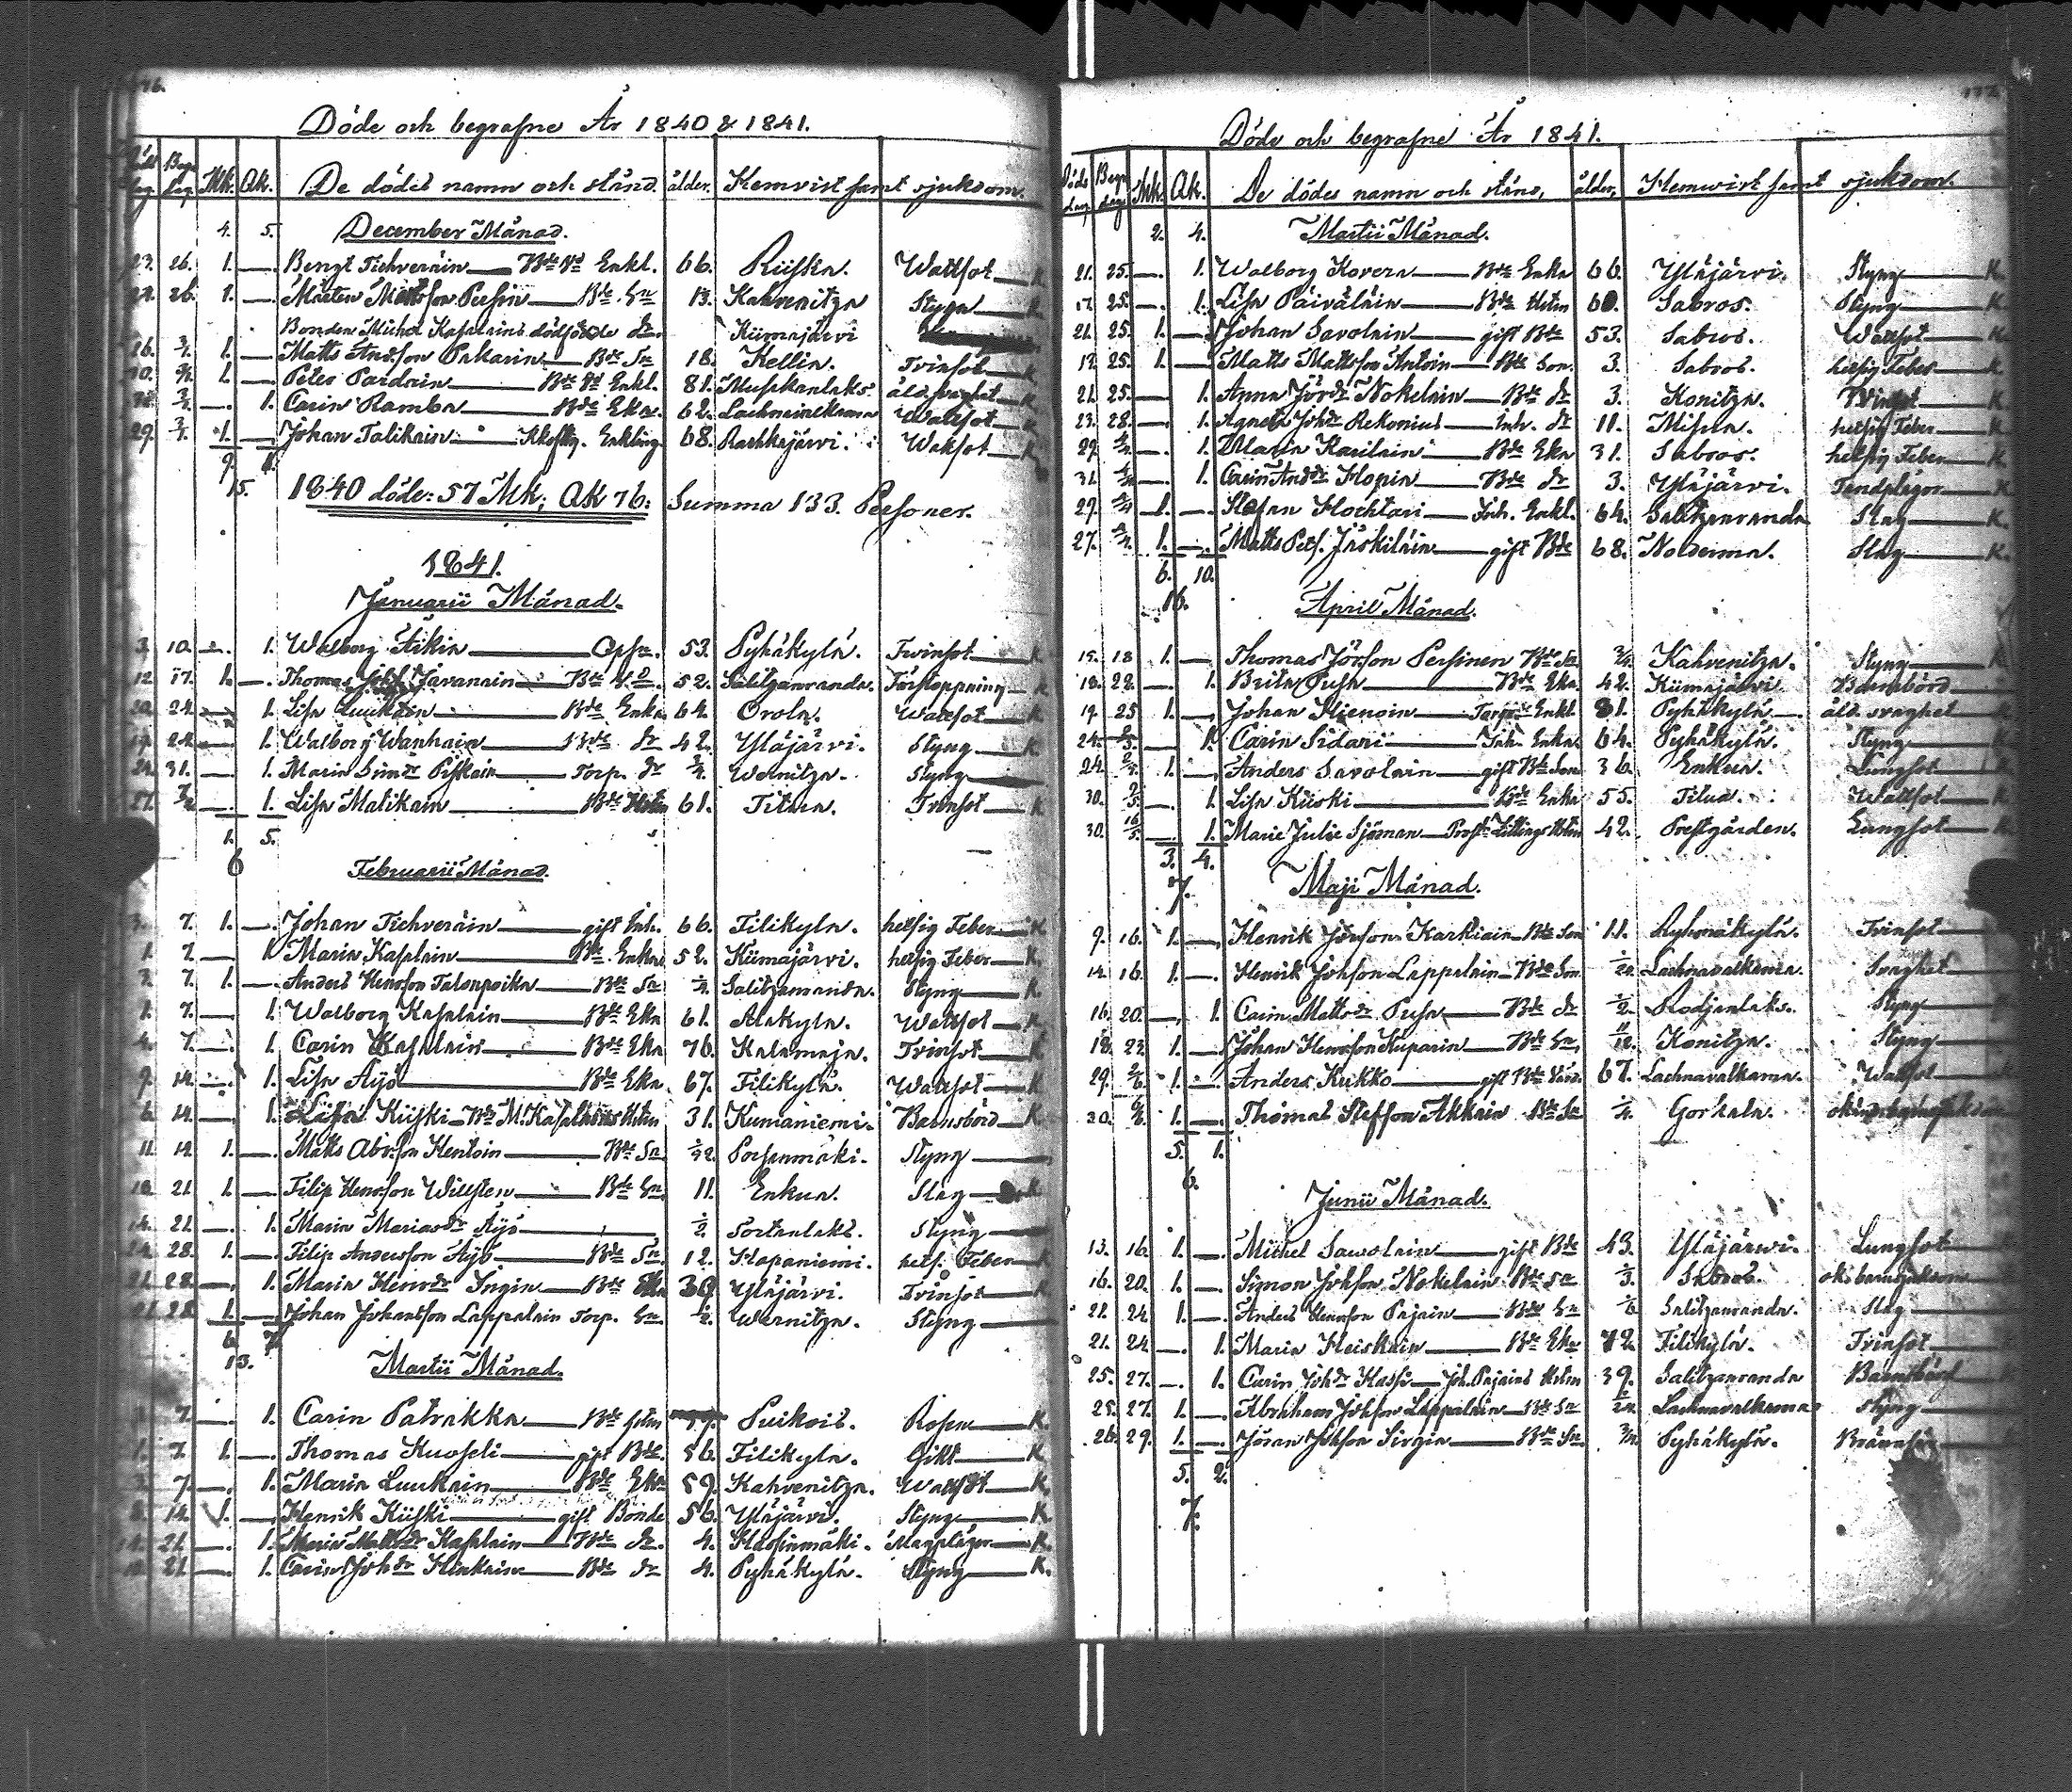 176.
Döde och begrafne År 1840 & 1841.
Död dag Begr dag Mk. Qk. De dödes namn och stånd. ålder. Hemvist samt sjukdom.
4. 5. December Månad.
23. 26. 1. — Bengt Tichveräin — Bde Enkl. 66. Riiska. Wattsot — K
26. 1. — Mårten Mattsson Persin — Bde Sn 13. Kahvenitza Styng — K
Bonden Michel Kasalains dödfödde dr. Kiimajärvi
26. 3/1. 1. — Matts Andsson Pakarin — Bde Sn 18. Kellin. Tvinsot — K
1. — Peter Pardain — Enkl. 81. ålds svaghet — K
— 1. Carin Ramba — Bde Eka. 62. Wattsot — K
29. 3/1. 1. — Johan Talikain — Enkling. 68. Raskkajärvi. Wattsot — K
9. 6.
15. 1840 döde: 57 Mk; Qk 76: Summa 133. Personer.
1841.
Januarii Månad.
3. 10. — 1. Walborg Äikia — 53. Pyhäkylä. Tvinsot — K
12. 17. 1. — Thomas Javanain — Bde 52. Salitzanranda. Förstoppning — K
24. — 1. Lisa Luukain — Bde Enka 64. Orola. Wattsot — K
24. — 1. Walborg Wanhain — Bde dr 42. Yläjärvi. Styng — K
24. 31. — 1. Maria Simdr Piskain — Torp. dr 3/4. Wernitza. Styng —
27. 7/2. — 1. Lisa Matikain — Bde Hstru 61. Titua. Tvinsot — K
1. 5.
6
Februarii Månad.
3. 7. 1. — Johan Tichveräin — gift Inh. 66. Tilikylä. hetsig Feber — K
1. 7. — 1. Maria Kasalain — Bde Enka 52. Kiimajärvi. hetsig Feber — K.
3. 7. 1. — Anders Henrsson Talonpoika — Bde Sn 1/4. Salitzanranda. Styng — K.
1. 7. — 1. Walborg Kasalain — Bde Eka 61. Alakylä. Wattsot — K
4. 7. — 1. Carin Kasalain — Bde Eka 76. Kalamaja. Tvinsot — K
9. 14. — 1. Lisa Äijö — Bde Eka 67. Tilikylä. Wattsot — K
6. 14. — 1. Kiiski — Bde M. Kasalains Hstru 31. Kumaniemi. Barnsbörd — K
11. 14. 1. — Matts Abrsson Hentoin — Bde Sn Porsanmäki. Styng —
21. 1. — Filip Henrsson Willsten — Bde Sn. 11. Enkua. Slag — K
14. 21. — 1. Maria Mariasdr Äijö — 1/2. Sortanlaks. Styng —
28. 1. — Filip Andersson Äijö — Bde Sn. 12. Hapaniemi. hets. Feber — K
21. 28. — 1. Maria Henrdr Ingin — Bde Yläjärvi. Tvinsot — K
28. 1. — Johan Johansson Lappalain Torp. Sn 1/2. Wernitza. Styng —
6. 7.
13. Martii Månad.
1. 7. — 1. Carin Patrakka — Bde Hstru Puikois. Rosen — K.
1. 7. 1. — Thomas Kuoseli — gift Bde. 56. Tilikylä. Gikt — K
3. 7. — 1. Maria Luukain — Bde Eka 59. Kahvenitza. Wattsot — K.
8. 14. 1. — Henrik Kiiski — gift Bonde 56. Yläjärvi. Styng — K.
21. — 1. Maria Mattsdr Kasalain — Bde dr. 4. Hassinmäki. Magplågor — K.
21. — 1. Carin Johdr Hinkain — Bde dr 4. Pyhäkylä. Styng — K.
177.
Döde och begrafne År 1841.
Döds dag Begr dag Mk. Qk. De dödes namn och stånd. ålder. Hemwist samt sjukdom.
2. 4. Martii Månad.
21. 25. — 1. Walborg Kovera — Bde Enka 66. Yläjärvi. Styng — K.
17. 25. — 1. Lisa Päiväläin — Bde Hstru 60. Sabros. Styng — K
21. 25. 1. — Johan Savolain — gift Bde 53. Sabros. Wattsot — K
17. 25. 1. — Matts Mattsson Antoin — Bde Son. 3. Sabros. hetsig Feber — K
21. 25. — 1. Anna Jördr Nokelain — Bde dr 3. Konitza. Tvinsot — K
23. 28. — 1. Agneta Johdr Rekonius — Inh. dr 11. Misua. hetsig Feber — K
29. 4/4. — 1. Maria Karilain — Bde Eka 31. Sabros. hetsig Feber — K
31. 4/4. — 1. Carin Anddr Hopia — Bde dr 3. Yläjärvi. Tandplågor — K
29. 4/4 1. — Stefan Hochtari — Inh. Enkl. 64. Salitzanranda Slag — K.
27. 4/4. 1. — Matts Pets. Jäskiläin — gift Bde 68. Noldenma. Slag — K.
6. 10.
16. April Månad.
15. 18 1. — Thomas Jörsson Persinen Bde Sn 3/4. Kahvenitza. Styng —
18. 22. — 1. Brita Pusa — Bde Eka. 42. Kiimajärvi Barnsbörd —
19. 25 1. — Johan Hienoin — Torp. Enkl 81. Pyhäkylä. åld. svaghet —
24. 2/5. — 1. Carin Sidari — Inh. Enka. 64. Pyhäkylä. Styng —
24. 2/5. 1. — Anders Savolain — gift Bde Son 36. Enkua. Lungsot —
30. 2/5. — 1. Lisa Kiiski — Bde Enka 55. Titua. Wattsot —
30. 16/5. — 1. Marie Julie Sjöman — Prost Zittings Hstru 42. Prestgården. Lungsot —
3. 4.
7. Maji Månad.
9. 16. 1. — Henrik Jörsson Karkiain — Bde Son 11. Ryhmäkylä. Tvinsot —
14. 16. 1. — Henrik Johsson Lappalain — Bde Son Lachnavalkama. Svaghet —
16. 20. — 1. Carin Mattsdr Pusa — Bde dr 1/2. Rodjanlaks. Styng —
18. 23. 1. — Johan Henrsson Kuparin — Bde Sn. 11/12. Konitza. Styng —
29. 2/6 1. — Anders Kukko — gift Bde 67. Lachnavalkama. Wattsot —
30. 6/6. 1. — Thomas Steffsson Akkain Bde Sn 1/4. Gorkala.
5. 1.
6. Junii Månad.
13. 16. 1. — Michel Sawolain — gift Bde 43. Yläjärwi. Lungsot —
16. 20. 1. — Simon Johsson Nokelain Bde Sn 1/3. Sabros. ok. barnsjukdom
22. 24. 1. — Anders Henrsson Pajain — Bde Sn 1/6 Salitzanranda. Slag —
21. 24. — 1. Maria Heiskain — Bde Eka 72. Tilikylä. Tvinsot
25. 27. — 1. Carin Johdr Hassi — Joh. Pajains Hstru 39. Salitzanranda Barnsbörd
25. 27. 1. — Abraham Johsson Lappalain — Bde Sn Lachnavalkama Styng —
26. 29. 1. — Jöran Johsson Sirgia — Bde Sn. 3/4. Pyhäkylä.
5. 2.
7.